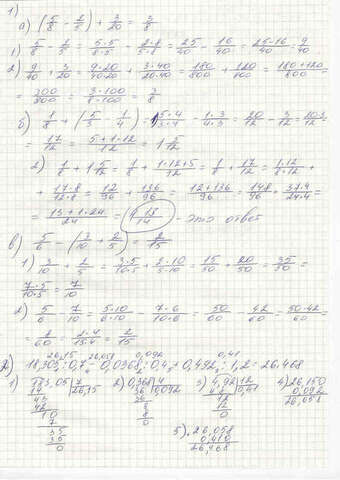 1)
а) (5/8 - 2/5) + 3/20 = 3/8
1) 5/8 - 2/5 = 5·5/8·5 - 2·8/5·8 = 25/40 - 16/40 = 25-16/40 = 9/40
2) 9/40 + 3/20 = 9·20/40·20 + 3·40/20·40 = 180/800 + 120/800 = 180+120/800 =
= 300/800 = 3·100/8·100 = 3/8
б) 1/8 + (5/3 - 1/4) = 5·4/3·4 - 1·3/4·3 = 20/12 - 3/12 =
= 17/12 = 5+1·12/12 = 1 5/12
2) 1/8 + 1 5/12 = 1/8 + 1·12+5/12 = 1/8 + 17/12 = 1·12/8·12 +
+ 17·8/12·8 = 12/96 + 136/96 = 12+136/96 = 148/96 =
= 13+1·24/24 = - это ответ
в) 5/6 - (3/10 + 2/5) = 2/15
1) 3/10 + 2/5 = 3·5/10·5 + 2·10/5·10 = 15/50 + 20/50 = 35/50 =
7·5/10·5 = 7/10
2) 5/6 - 7/10 = 5·10/6·10 - 7·6/10·6 = 50/60 - 42/60 = 50-42/60 =
= 8/60 = 2·4/15·4 = 2/15
26,15 26,058 0,092 0,41
2) 18,305:0,7 - 0,0368:0,4 + 0,492:1,2 = 26,468
1) 183,05 7 2) 0,368 4 3) 4,92 12 4) 26,150
14 26,15 36 0,092 48 0,41 0,092
43 8 12 26,058
42 8 12
10 0 0
7
35
35 5) 26,058
0 0,410
26,468